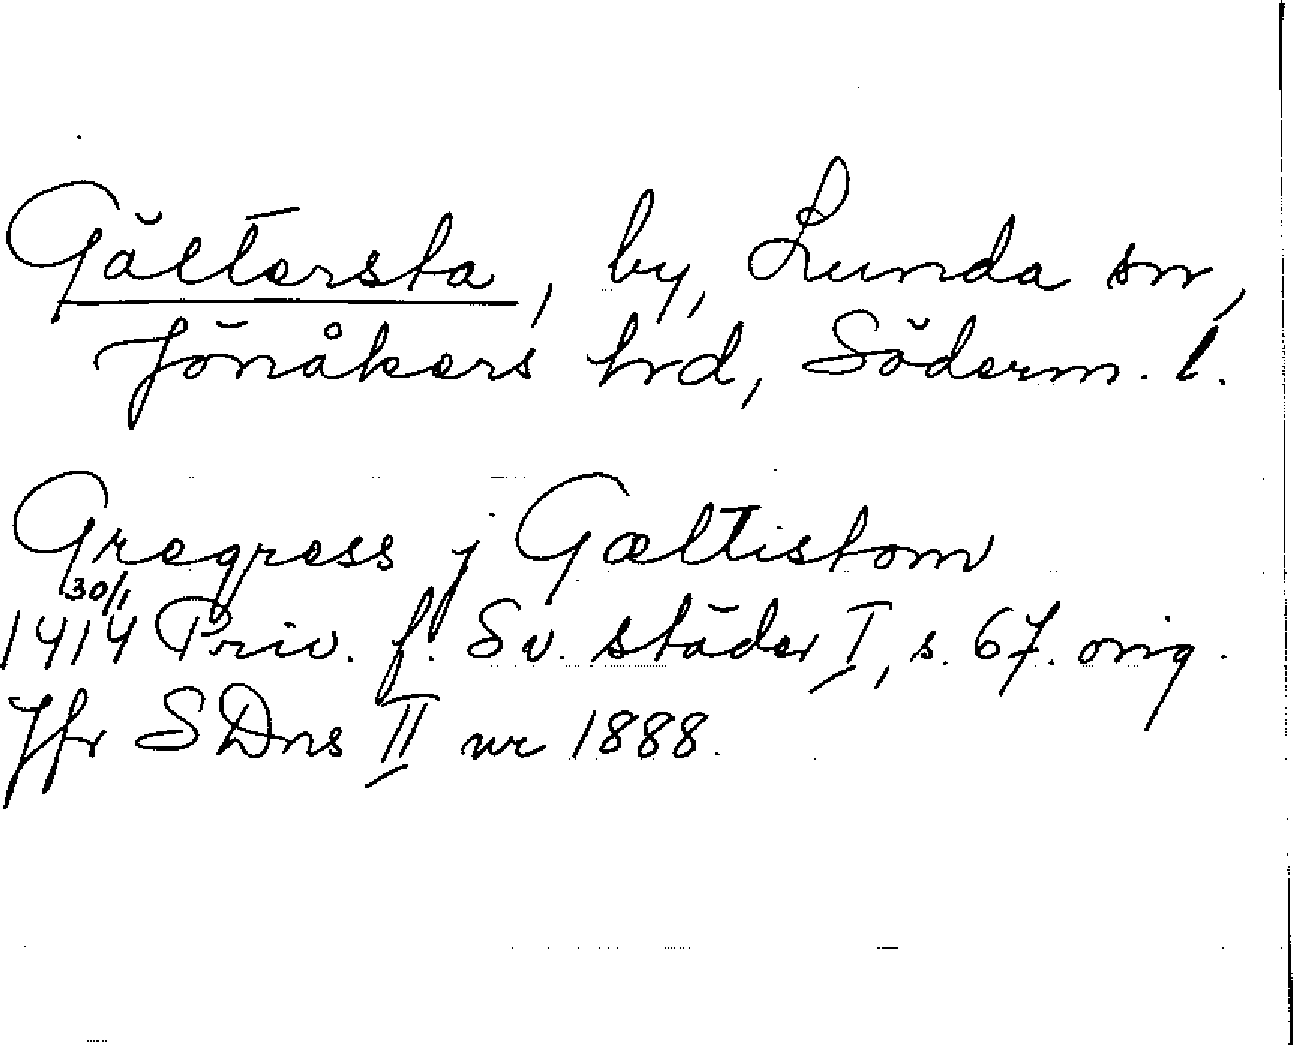 Gältersta, by, Lunda sn,
Jönåkers hrd, Söderm. l.
Gregress j Gæltistom
30/1
1414 Priv. f. Sv. städer I, s. 67. orig.
Jfr SDns II nr 1888.